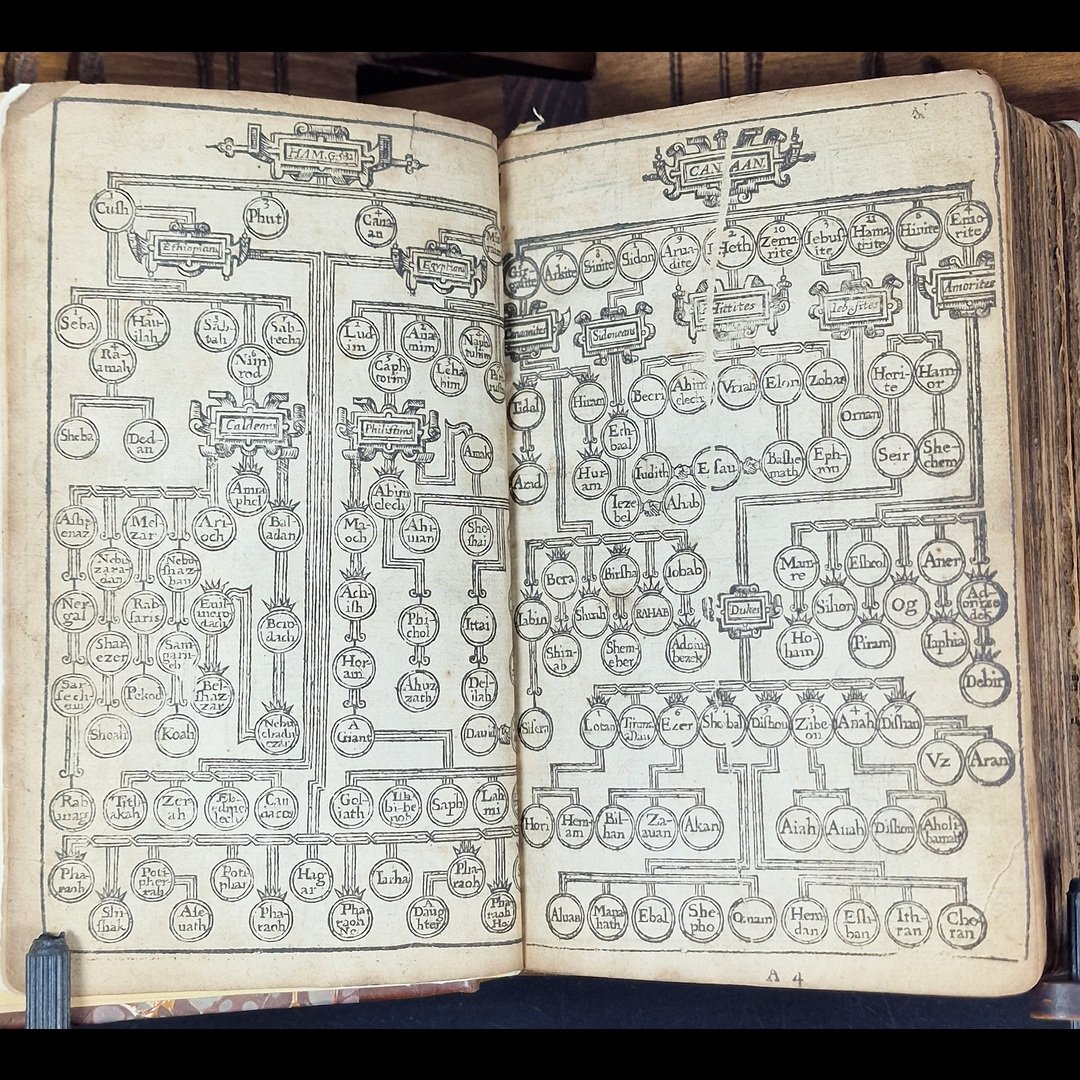 HAM.G.5.32
Cush
Phut
Cana an
Ethiopians
Egyptians
Seba
Hau ilah
Sab tah
Sab techa
Ra mah
Nim rod
Lud im
Ana mim
Naph tuhim
Caph torim
Leha bim
Sheba
Ded an
Caldeans
Philistims
Amra phel
Abim elech
Anak
Ashp enaz
Mel zar
Ari och
Bal adan
Ma och
Ahi man
She shai
Nebu zara dan
Nebu shaz ban
Ner gal
Rab saris
Euil mero dach
Bero dach
Ach ish
Phi chol
Ittai
Shar ezer
Sam garn eb
Sar sech em
Pekod
Bel shaz zar
Hor am
Ahuz zath
Del ilah
Shoah
Koah
Nebu chadnez zar
A Giant
David
Rab
Tirh akah
Zer ah
Ebedme lech
Can daces
Gol iath
Ish bi be nob
Saph
Lah mi
Pha raoh
Poti pher rah
Poti phar
Hag ar
Pha raoh
Shi shak
Ase nath
Pha raoh
Pha raoh Ne
A Daug hter
Pha raoh Ho
CANAAN.
Arkite
Sinite
Sidon
Arua dite
Heth
Zema rite
Iebus ite
Hama thite
Hiuite
Emo rite
Sidoneans
Hittites
Iebusites
Amorites
Tidal
Hiram
Beeri
Abim elech
Vriah
Elon
Zohar
Hori te
Ham or
Ornan
Eth baal
Arad
Hur am
Iudith
Esau
Bashe math
Eph ron
Seir
She chem
Ieze bel
Ahab
Bera
Birsha
Iobab
Mam re
Eshcol
Aner
Iabin
RAHAB
Dukes
Sihon
Og
Ad onize dek
Shin ab
Shem eber
Adoni bezek
Ho ham
Piram
Iaphia
Debir
Sisera
Lotan
Ezer
Shobal
Dishon
Zibe on
Anah
Dishan
Vz
Aran
Hori
Hem am
Bil han
Za auan
Akan
Aiah
Anah
Dishon
Aholi bamah
Aluan
Mana hath
Ebal
She pho
Onam
Hem dan
Esh ban
Ith ran
Che ran
A 4